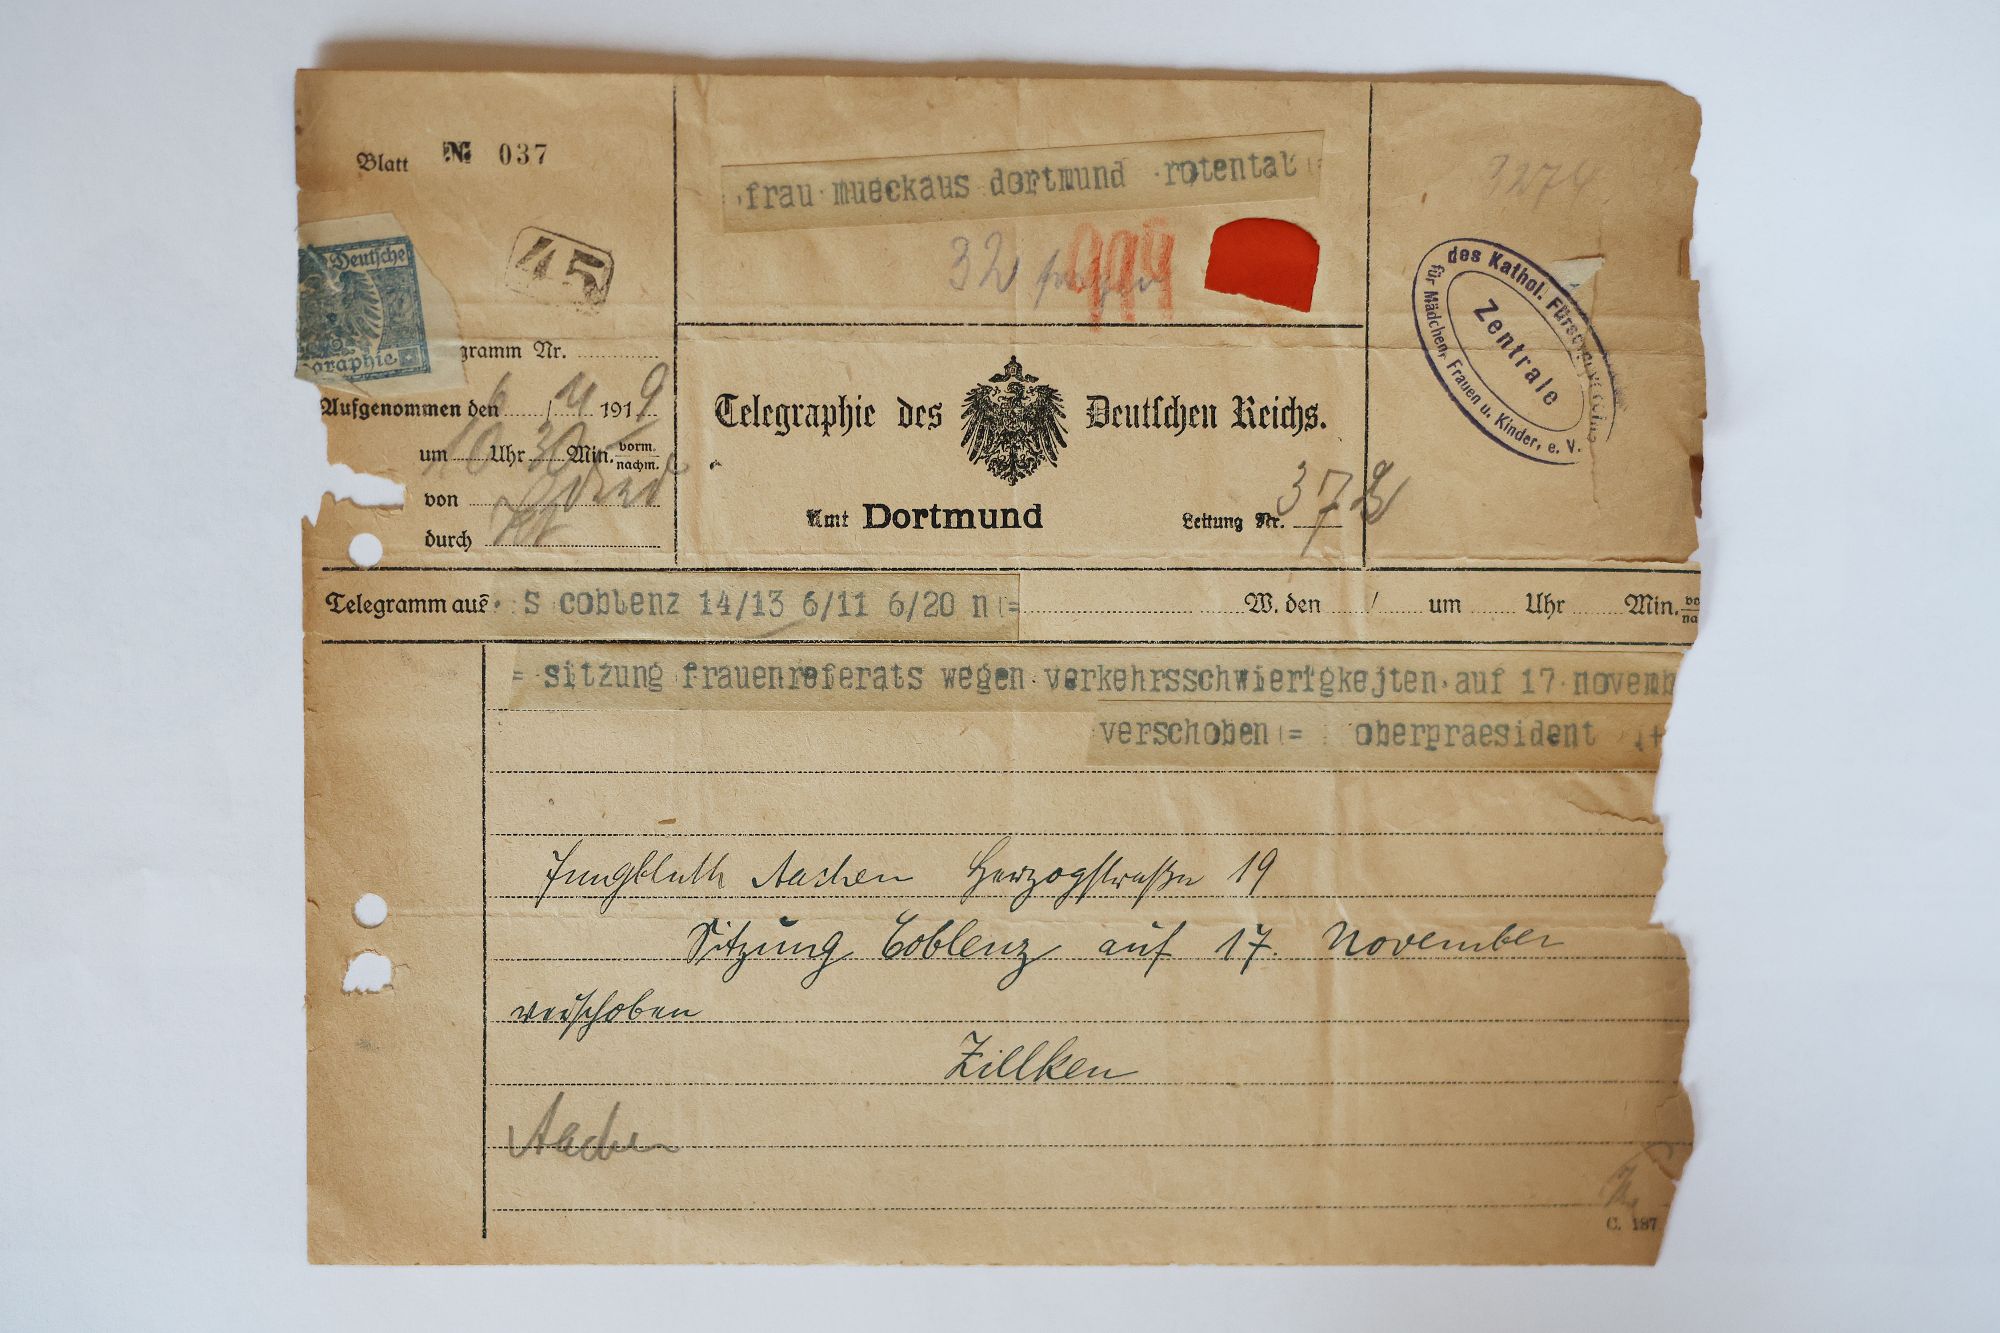 Blatt № 037
frau mueckaus dortmund rotental
3274
45
32
999
Deutsche
graphie
gramm Nr.
Aufgenommen den 6/11 1919
um 10 Uhr 30 Min. vorm. nachm.
von
durch
Telegraphie des Deutschen Reichs.
Amt Dortmund
Leitung Nr. 372
des Kathol. Fürsorgevereins
für Mädchen, Frauen u. Kinder, e. V.
Zentrale
Telegramm aus S coblenz 14/13 6/11 6/20 n = W. den / um Uhr Min. vo na
= sitzung frauenreferats wegen verkehrsschwierigkejten auf 17 novemb
verschoben = oberpraesident +
Jungbluth Aachen Herzogstraße 19
Sitzung Coblenz auf 17. November
verschoben
Zillken
Aachen
C. 187